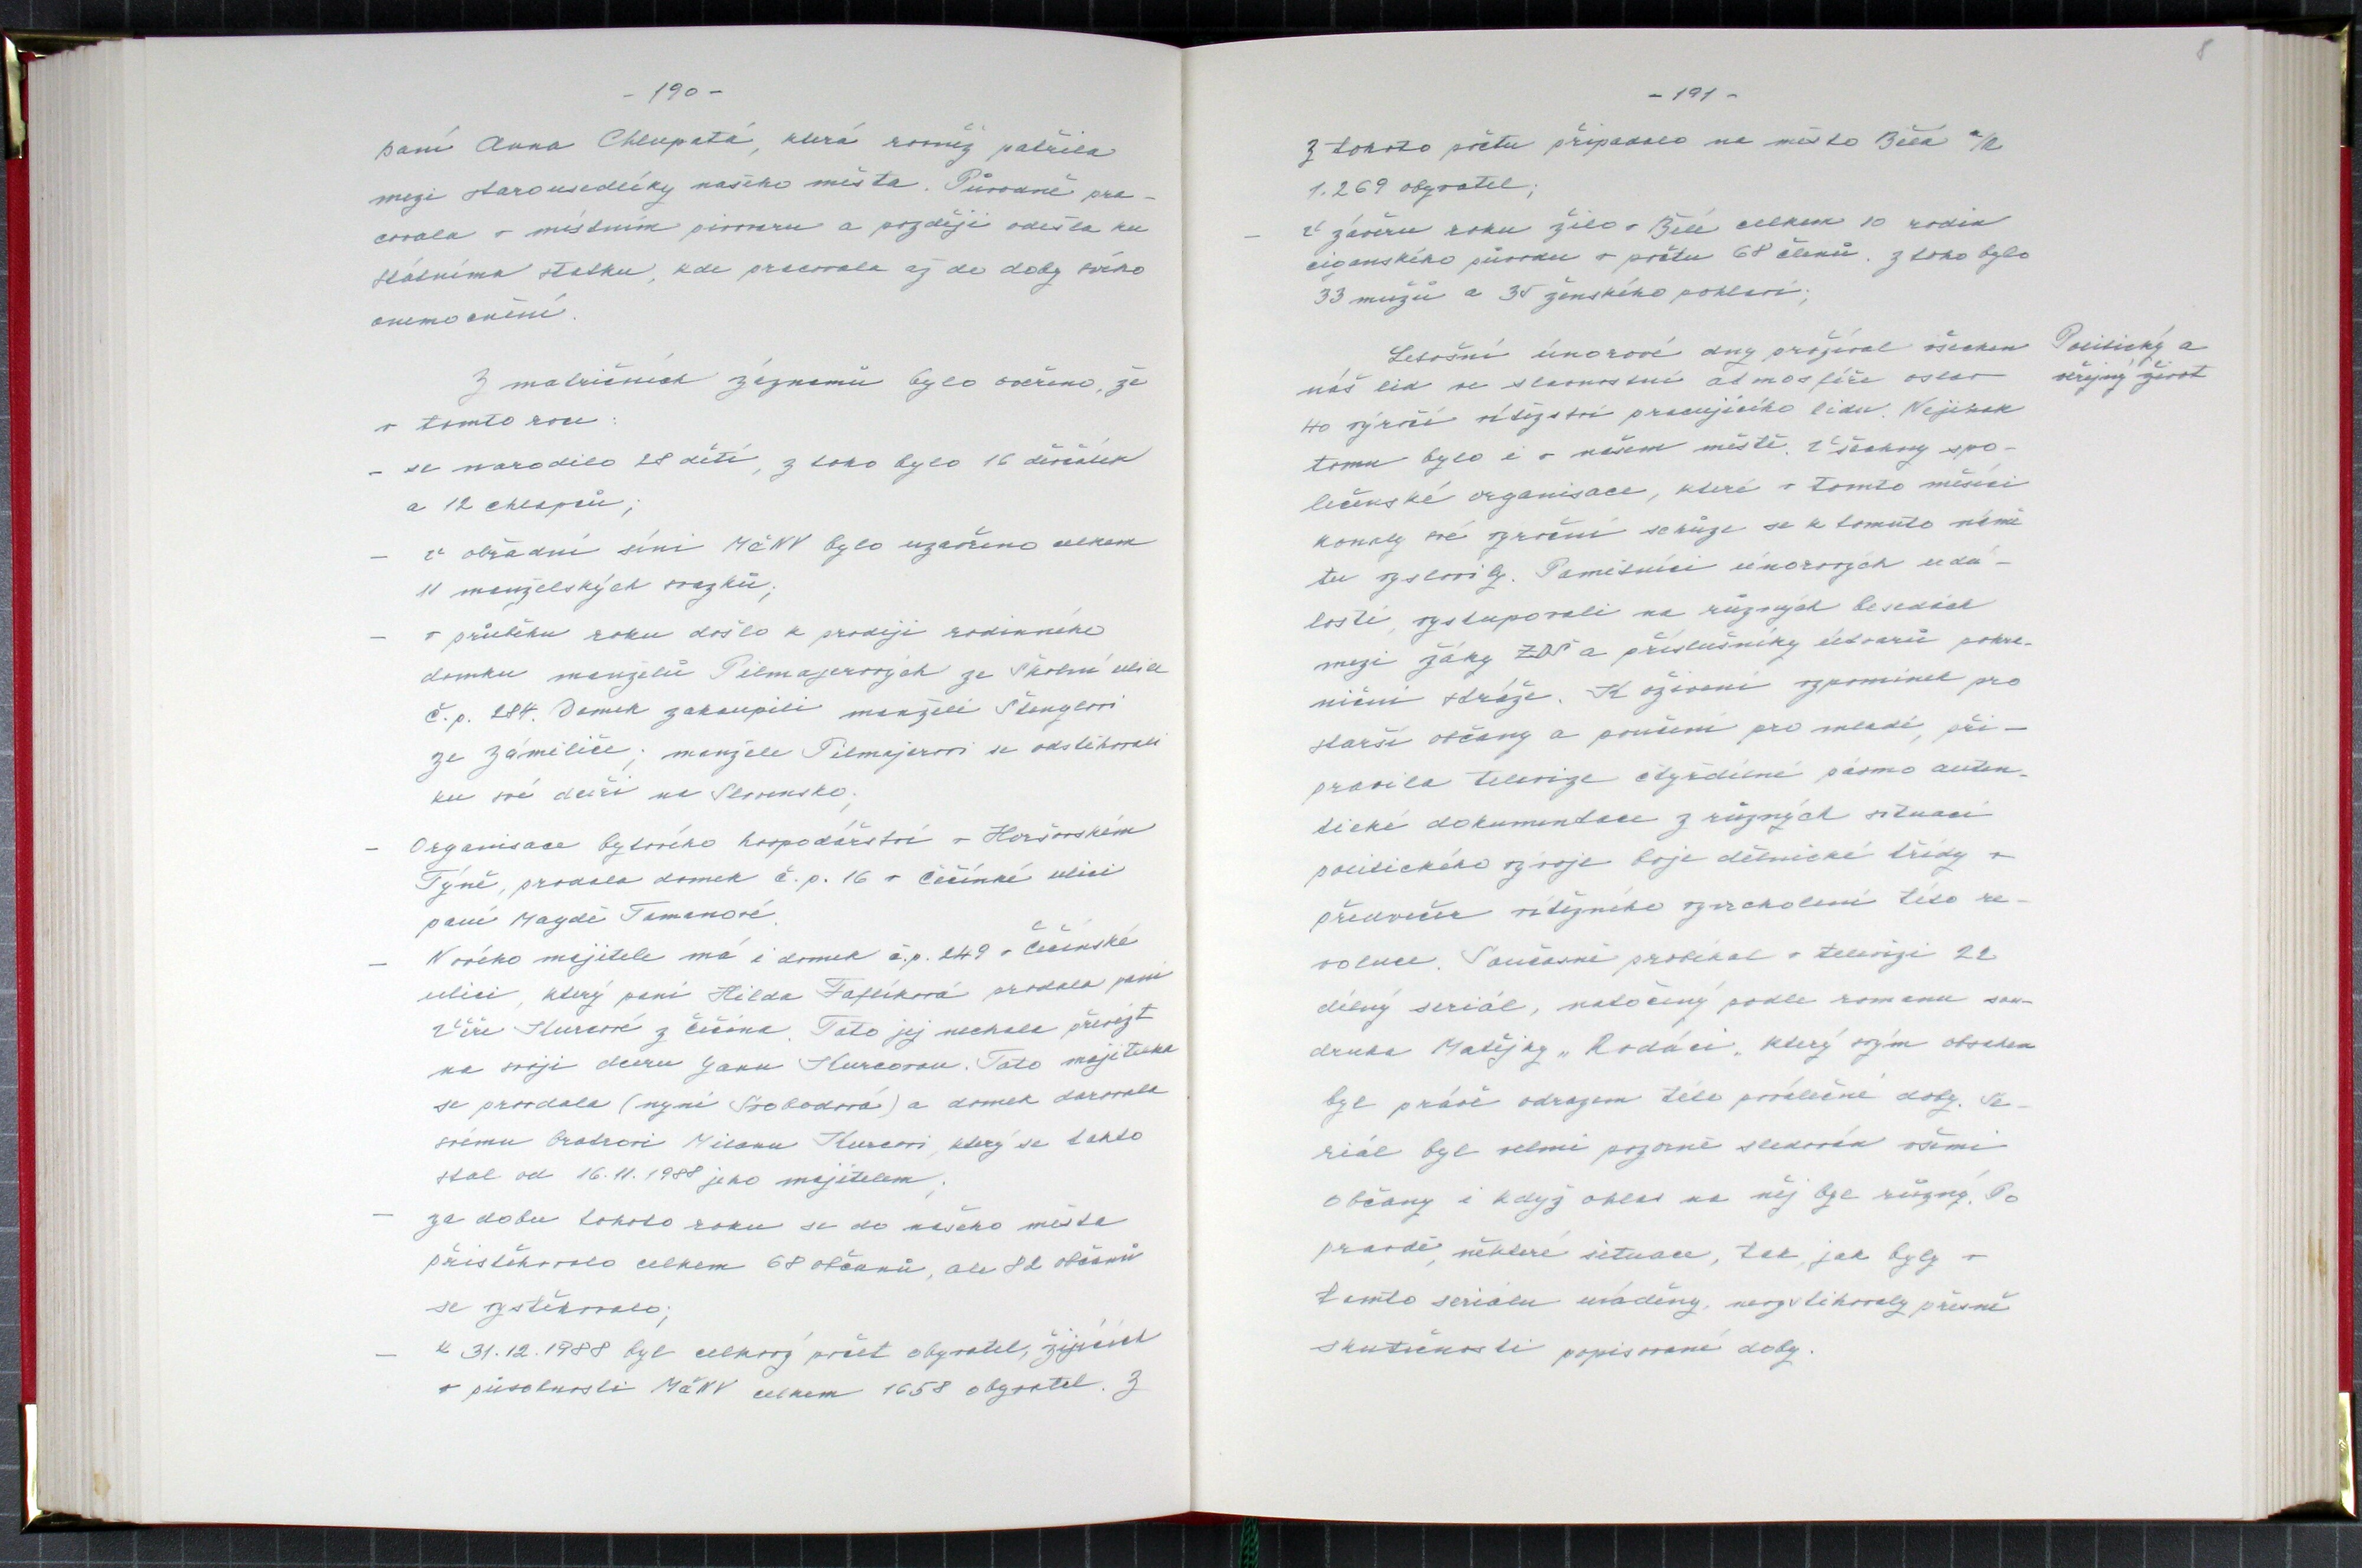 - 190 -
paní Anna Chlupatá, která rovněž patřila
mezi starousedlíky našeho města. Původně pra-
covala v místním pivovaru a později odešla ku
státnímu statku, kde pracovala až do doby svého
onemocnění.
Z matričních záznamů bylo ověřeno, že
v tomto roce:
- se narodilo 28 dětí, z toho bylo 16 děvčátek
a 12 chlapců;
- V obřadní síni MěNV bylo uzavřeno celkem
11 manželských svazků;
- v průběhu roku došlo k prodeji rodinného
domku manželů Pilmajerových ze Školní ulice
č.p. 284. Domek zakoupili manželé Štenglovi
ze Zámělíče; manželé Pilmajerovi se odstěhovali
ku své dceři na Slovensko;
- Organisace bytového hospodářství v Horšovském
Týně, prodala domek č.p. 16 v Čečínské ulici
paní Magdě Tamanové.
- Nového majitele má i domek č.p. 249 v Čečínské
ulici, který paní Hilda Faflíková prodala paní
Věře Kurcové z Čečína. Tato jej nechala převézt
na svoji dceru Janu Kurcovou. Tato majitelka
se provdala (nyní Svobodová) a domek darovala
svému bratrovi Milanu Kurcovi, který se takto
stal od 16.11.1988 jeho majitelem;
- za dobu tohoto roku se do našeho města
přistěhovalo celkem 68 občanů, ale 82 občanů
se vystěhovalo;
- k 31.12.1988 byl celkový počet obyvatel, žijících
v působnosti MěNV celkem 1658 obyvatel. Z
8
- 191 -
Z tohoto počtu připadalo na město Bělá n/R
1.269 obyvatel;
- V závěru roku žilo v Bělé celkem 10 rodin
cigánského původu v počtu 68 členů. Z toho bylo
33 mužů a 35 ženského pohlaví;
Politický a
veřejný život
Letošní únorové dny prožíval všechen
náš lid ve slavnostní atmosféře oslav
40 výročí vítězství pracujícího lidu. Nejinak
tomu bylo i v našem městě. Všechny spo-
lečenské organisace, které v tomto měsíci
konaly své výroční schůze se k tomuto námě
tu vyslovily. Pamětníci únorových udá-
lostí, vystupovali na různých besedách
mezi žáky ZDŠ a příslušníky útvarů pohra-
niční stráže. K oživení vzpomínek pro
starší občany a poučení pro mladé, při-
pravila televize čtyřdílné pásmo auten-
tické dokumentace z různých situací
politického vývoje boje dělnické třídy v
předvečer vítězného vyvrcholení této re-
voluce. Současně probíhal v televizi 22
dílný seriál, natočený podle romanu sou-
druha Matějky „Rodáci„ který svým obsahem
byl právě odrazem této poválečné doby. Se-
riál byl velmi pozorně sledován všemi
občany i když ohlas na něj byl různý. Po
pravdě, některé situace, tak, jak byly v
tomto seriálu uváděny, nevystihovaly přesně
skutečnosti popisované doby.